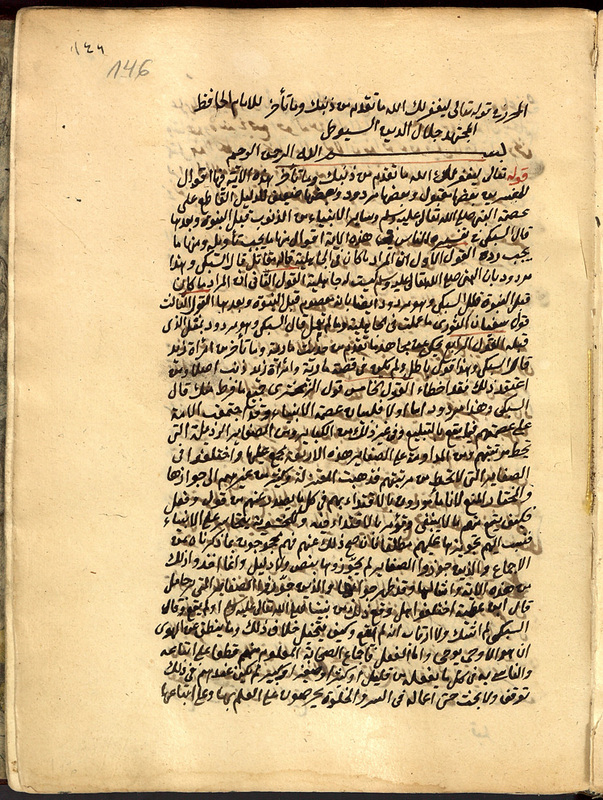 ١٤٦
146
المحرر في قوله تعالى ليغفر لك الله ما تقدم من ذنبك وما تأخر للامام الحافظ
المجتهد جلال الدين السيوطي
بسم الله الرحمن الرحيم
قوله تعالى ليغفر لك الله ما تقدم من ذنبك وما تأخر هذه الاية فيها اقوال
للمفسرين بعضها مقبول وبعضها مردود الدليل القاطع على
عصمة النبي صلى الله تعالى عليه وسلم وسائر الانبياء من الذنوب قبل النبوة وبعدها
قال السبكي في تفسيره وللناس في هذه الاية اقوال منها ما يجب تأويله ومنها ما
يجب رده القول الاول ان المراد ما كان في الجاهلية قاله مقاتل قال السبكي وهذا
مردود بان النبي صلى الله تعالى عليه وسلم ليست له جاهلية القول الثاني ان المراد ما كان
قبل النبوة قال السبكي وهو مردود ايضا بانه معصوم قبل النبوة وبعدها القول الثالث
قول سفيان الثوري ما عملت في الجاهلية وما لم تعمل قال السبكي وهو مردود بمثل الذي
قبله القول الرابع عن مجاهد ما تقدم من حديث مارية وما تأخر من امراة زيد
قال السبكي وهذا قول باطل ولم يكن في قصة مارية وامراة زيد ذنب اصلا ومن
اعتقد ذلك فقد اخطاء القول الخامس قول الزمخشري جميع ما فرط منك قال
السبكي وهذا مردود اما اولا فلبيان عصمة الانبياء وقد اجتمعت الامة
على عصمتهم فيما يتعلق بالتبليغ وفي غير ذلك من الكبائر ومن الصغاير الرذيلة التي
تحط مرتبتهم ومن المداومة على الصغاير هذه الاربعة مجمع عليها واختلفوا في
الصغاير التي لا تحط من مرتبتهم فذهبت المعتزلة وكثير من غيرهم الى جوازها
والمختار المنع لانا مأمورون بالاقتداء بهم في كل ما يصدر عنهم من قول وفعل
فكيف يقع منهم ما لا ينبغي ونؤمر بالاقتداء فيه
الاجماع والذين جوزوا الصغاير لم يجوزوها بنص ولا دليل وانما اخذوا ذلك
من هذه الاية وامثالها وقد ظهر جوابها والذين جوزوا الصغاير التي
قال ابن عطية اختلفوا هل وقع ذلك من نبينا صلى الله تعالى عليه وسلم او لم يقع وقال
السبكي لا اشك ولا ارتاب انه لم يقع وكيف يتخيل خلاف ذلك وما ينطق عن الهوى
ان هو الا وحي يوحى واما الفعل فاجماع الصحابة المعلوم منهم قطعا على اتباعه
والتاسي به في كل ما يفعله من قليل او كثير او صغير او كبير لم يكن عندهم في ذلك
توقف ولا بحث حتى اعماله في السر والخلوة يحرصون على العلم بها وعلى اتباعها